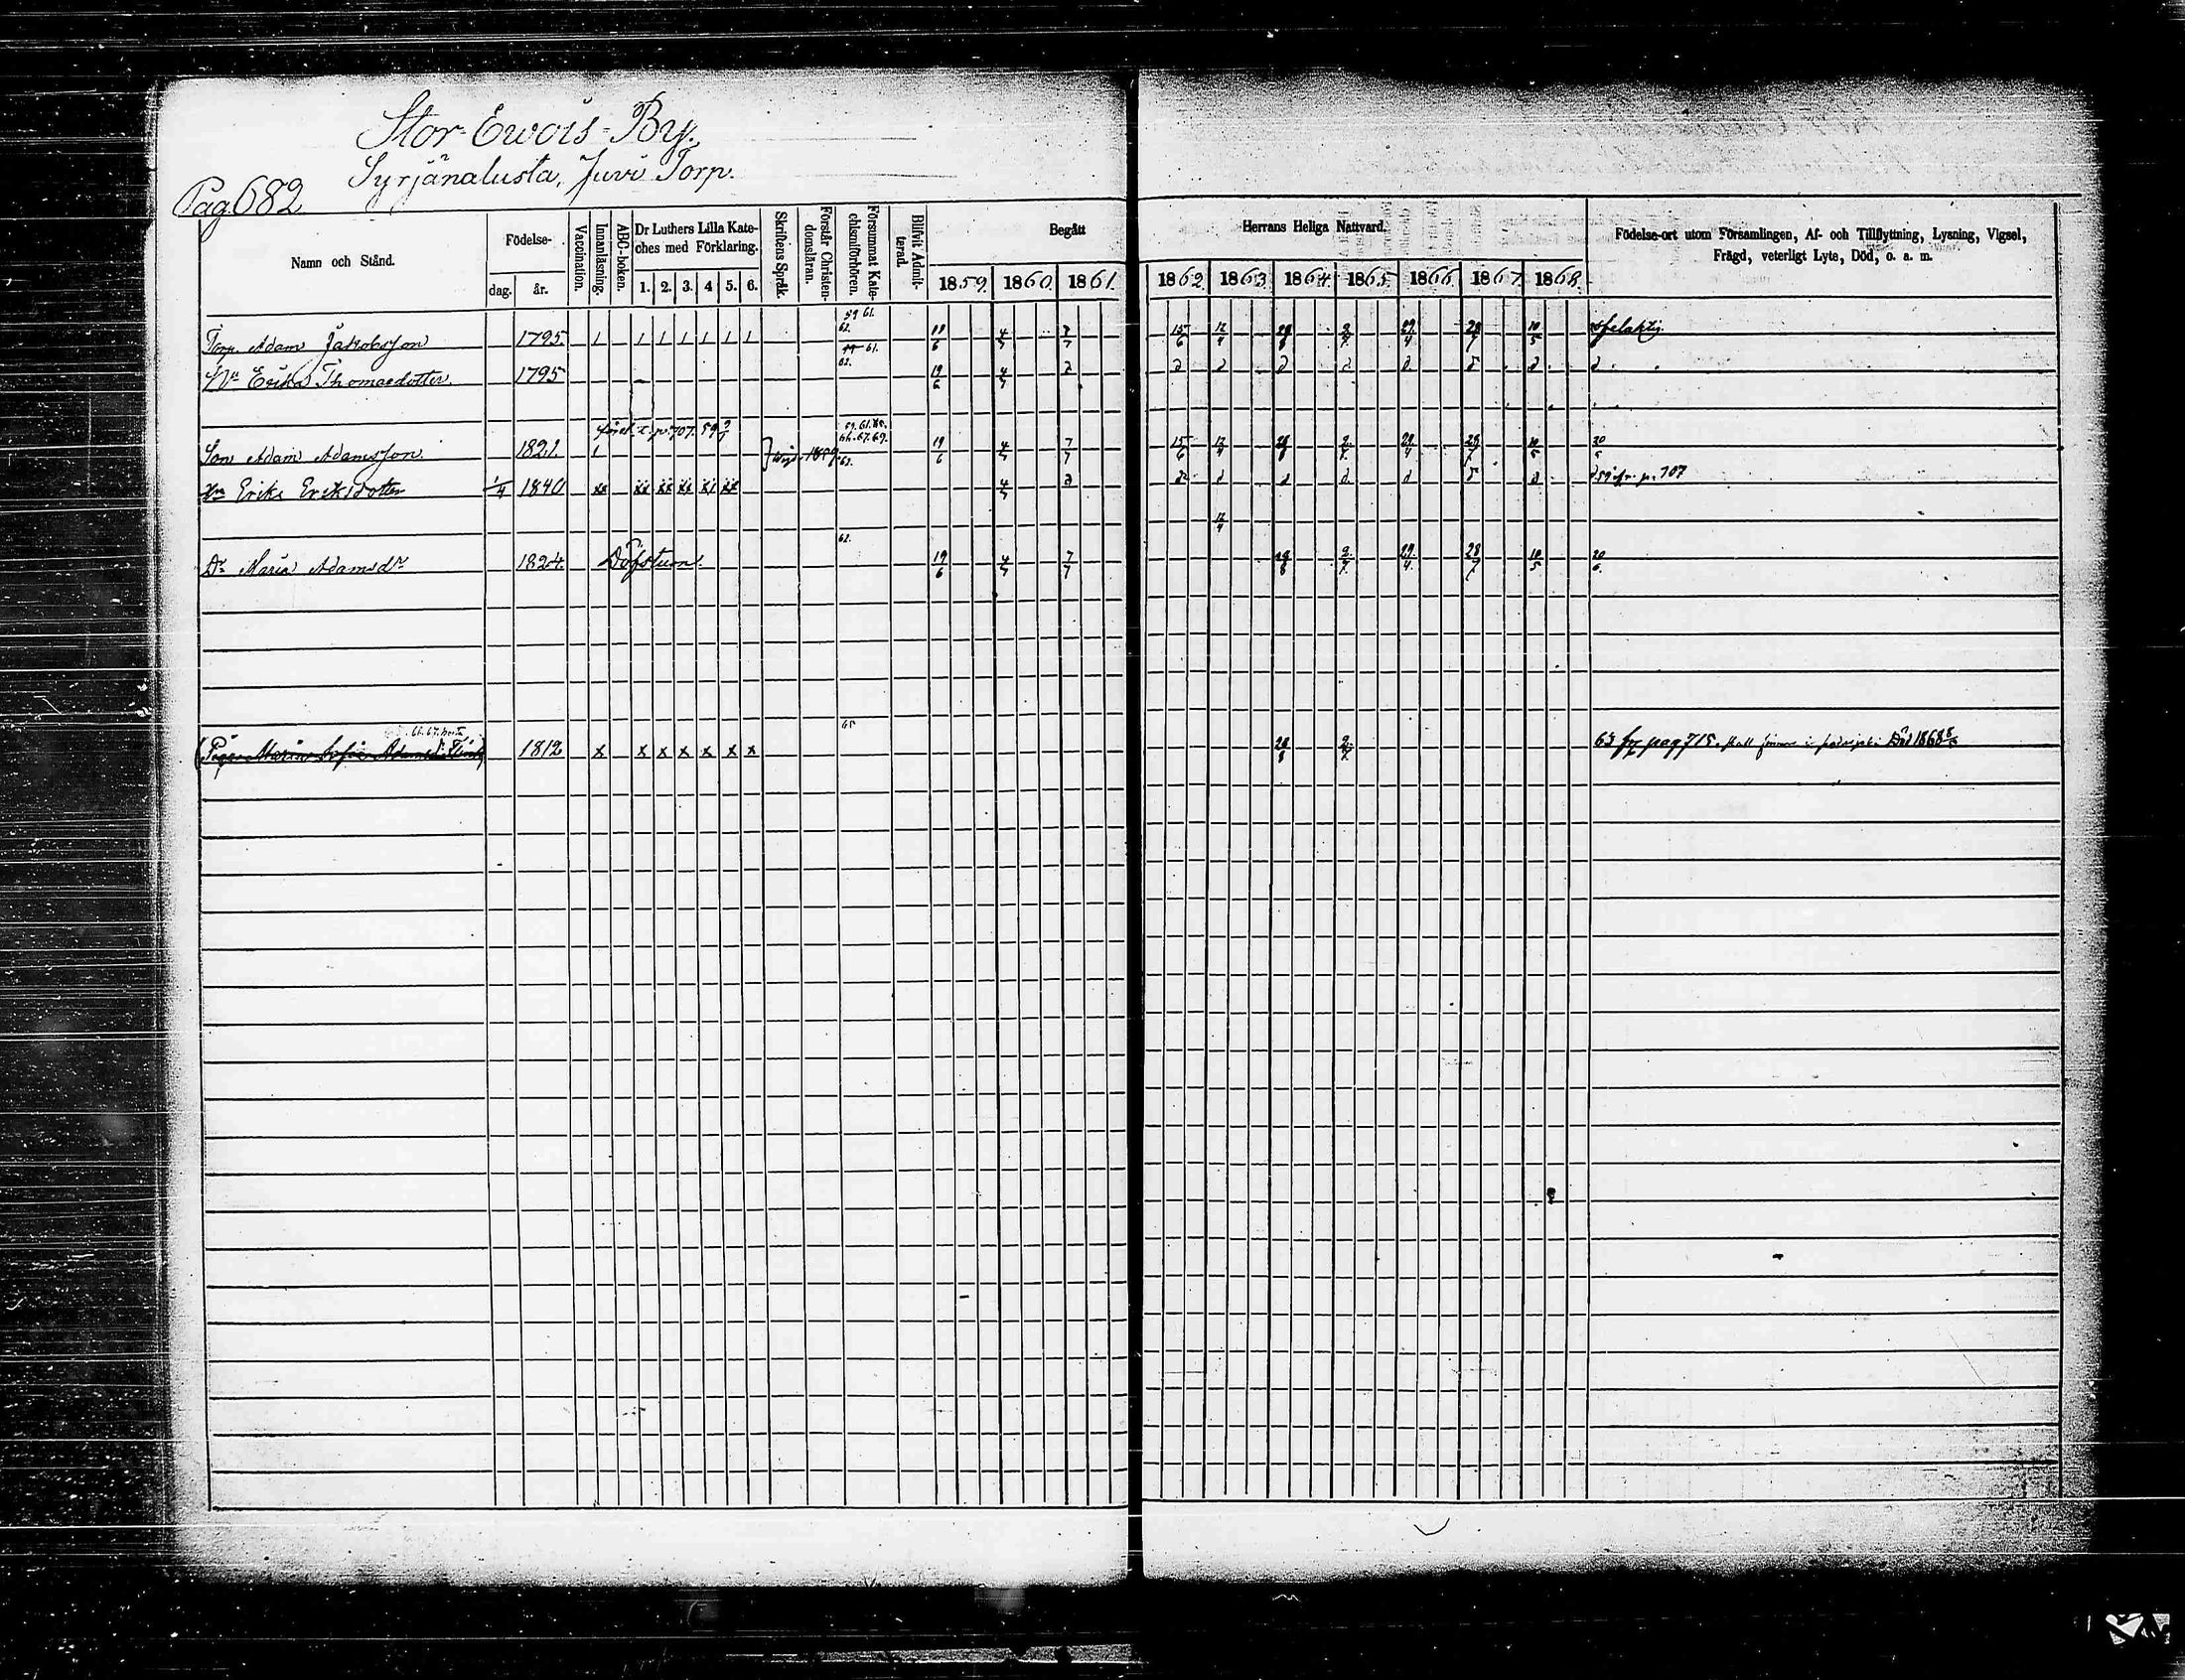 Stor-Ewois-By.
Syrjänalusta, Juvi Torp.
Pag 682
Namn och Stånd. Födelse- dag. år. Vaccination. Innanläsning. ABC-boken. Dr Luthers Lilla Kateches med Förklaring. 1. 2. 3. 4 5. 6. Skriftens Språk. Förstår Christendomsläran. Försummat Katechismiförhören. Blifvit Admitterad. Begått 1859. 1860. 1861.
Herrans Heliga Nattvard. 1862. 1863. 1864. 1865. 1866. 1867. 1868. Födelse-ort utom Församlingen, Af- och Tillflyttning, Lysning, Vigsel, Frägd, veterligt Lyte, Död, o. a. m.
59 61.
62.
Torp. Adam Jakobsson 1795 1 1 1 1 1 1 1 19/6 4/7 7/7 15/6 12/4 28/8 2/7 29/4 28/7 10/5 ofelaktig.
61.
62.
Hu Erika Thomasdotter. 1795 19/6 4/7 d d d d d d d d d
p. 707. 59
Son Adam Adamsson. 1821. 1 vigd. 1859 62. 19/6 4/7 7/7 15/6 12/4 28/8 2/7 29/4 28/7 10/5 20
Hu Erika Eriksdotter 1/4 1840 xx xx xx xx xx xx 4/7 d d d d d d d d 59 ifr. p. 707
12/4
62.
Dr Maria Adamsdr 1824. Döfstum. 19/6 4/7 7/7 28/8 2/7 29/4 28/7 10/5 20/6
66. 67. borta
65
(Pigan Maria Sofia Adamsdr 1812 x x x x x x x 28/8 2/7 63 fr pag 715. skall finnas i Död 1868